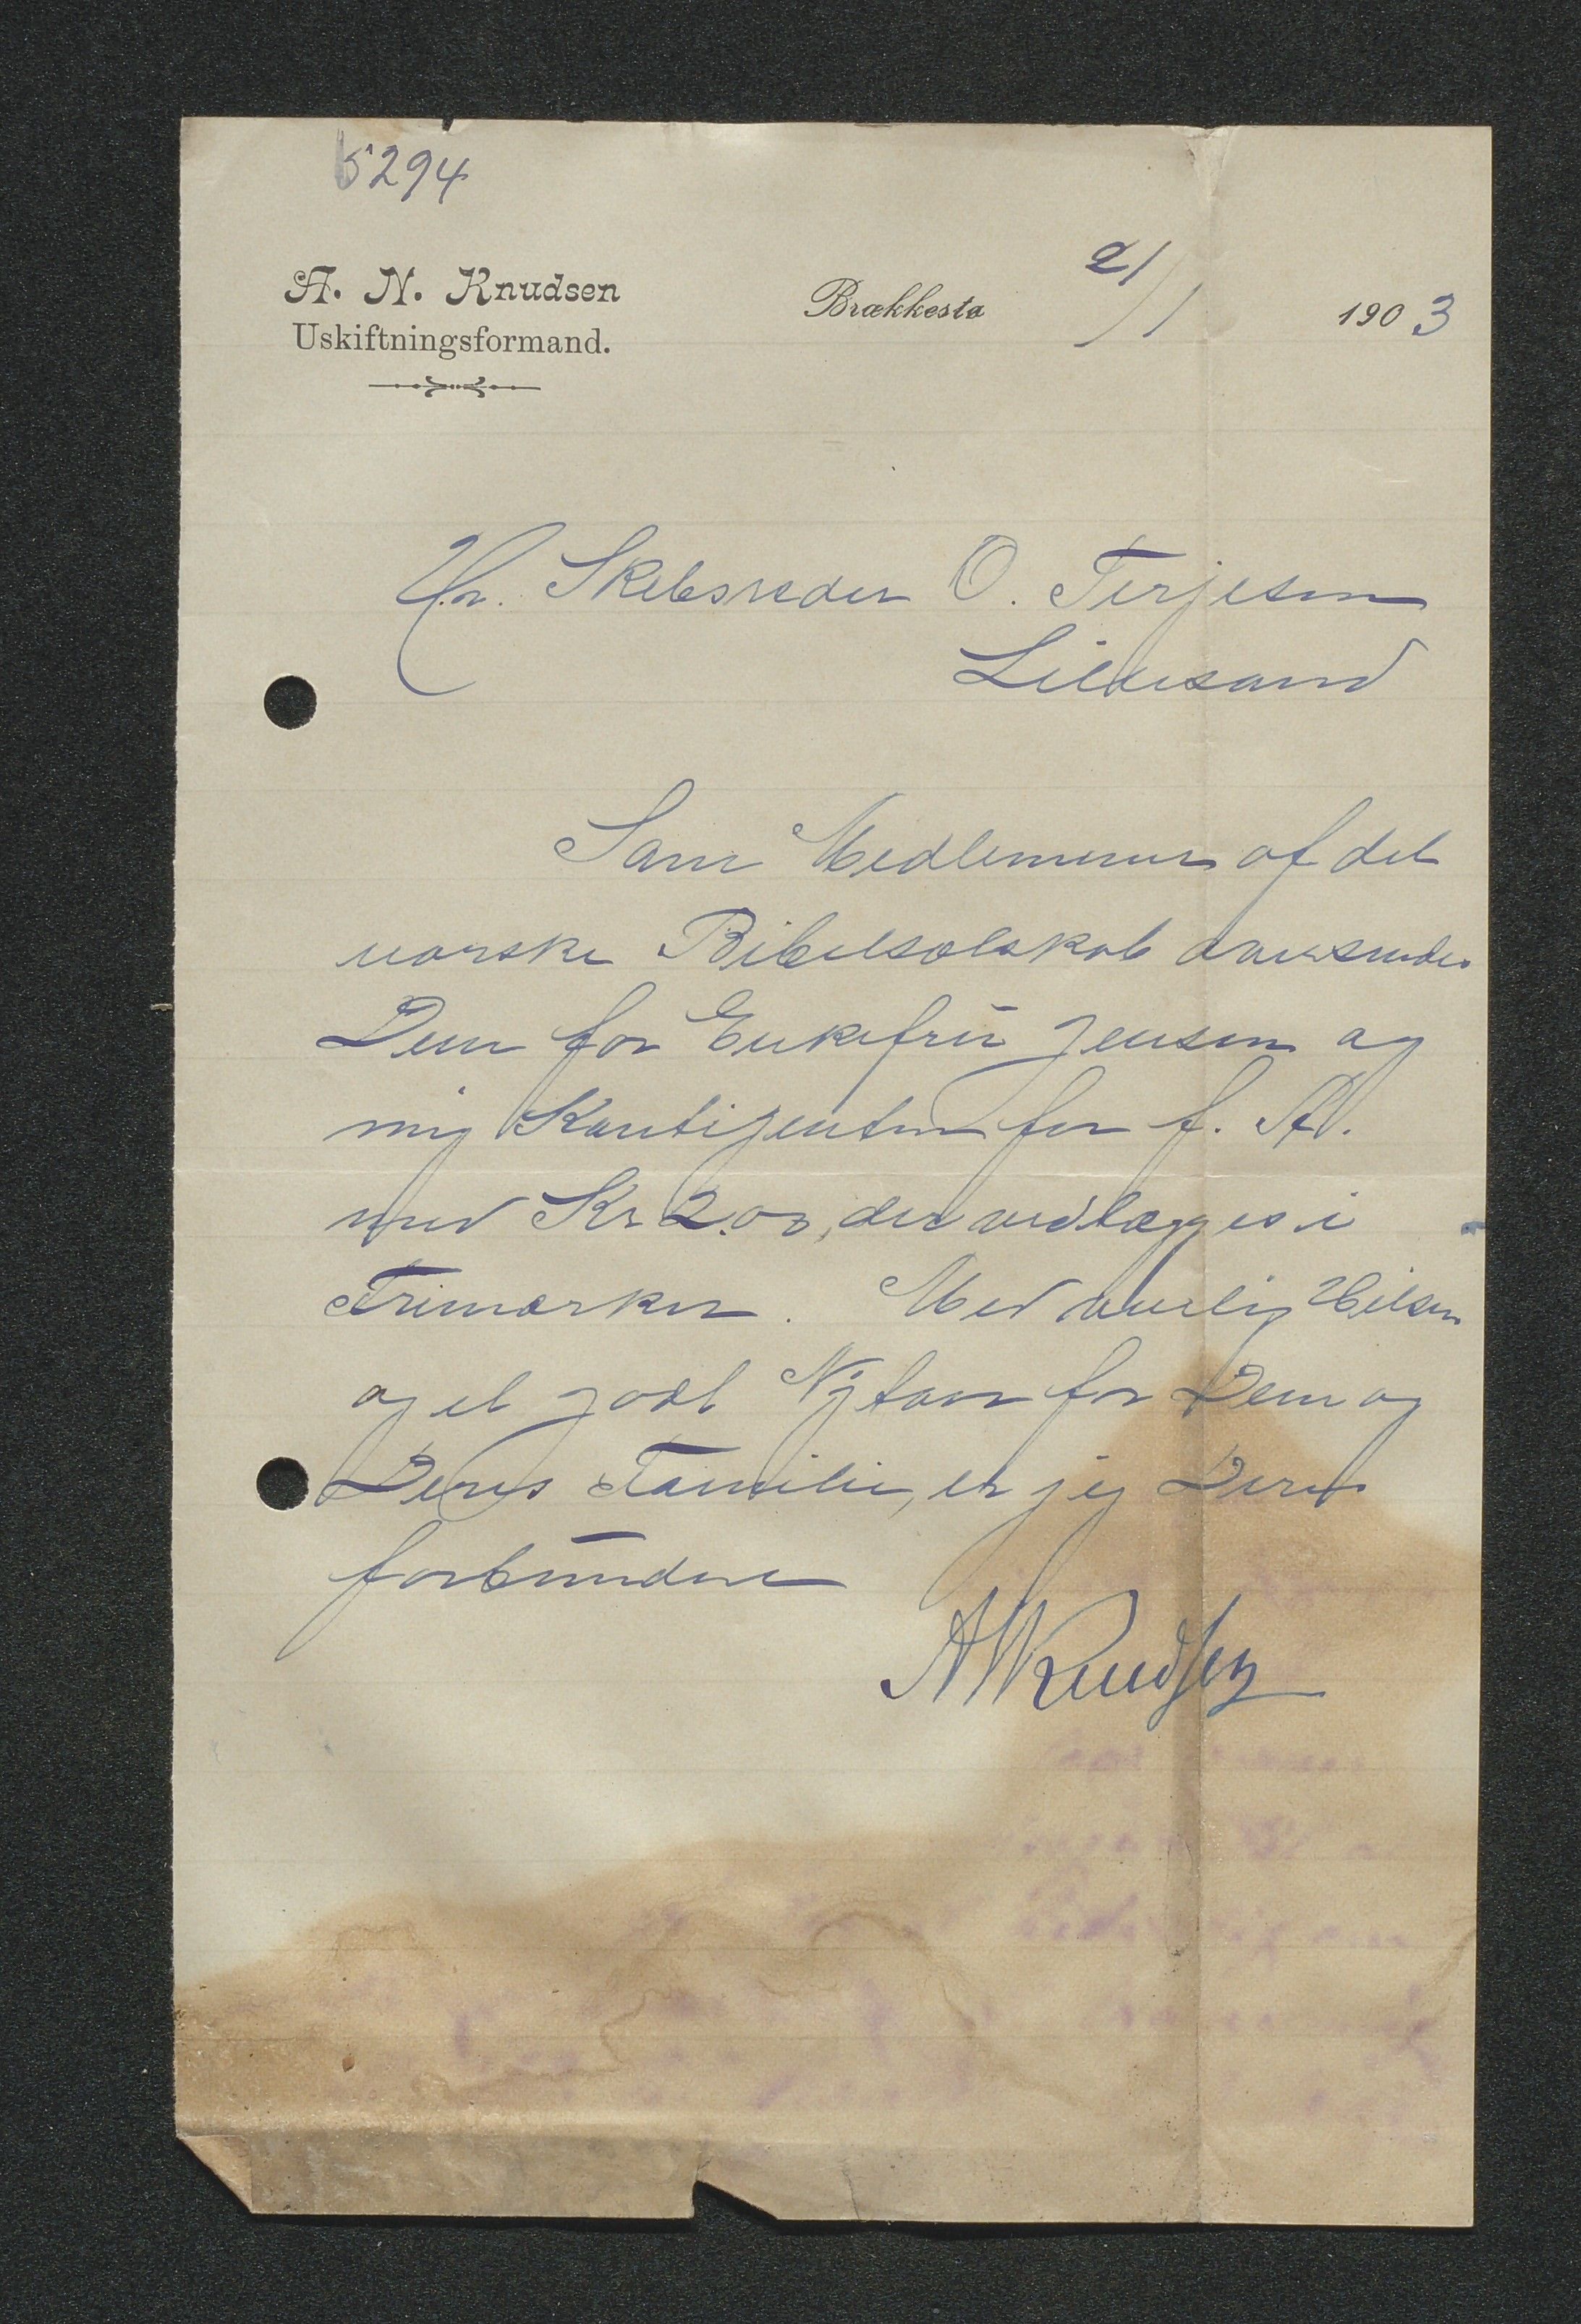 5294
A. N. Knudsen
Uskiftningsformand.
Brækkestø 2/1 1903
Hr. Skibsreder O. Terjesen
Lillesand
Som Medlemmer af det
norske Bibelselskab
Dem for Enkefru Jensen og
mig Kontigenten for f. A.
med Kr 2.00, der vedlægges i
Frimærker. Med venlig Hilsen
og et godt Nytaar for Dem og
Deres Familie, er jeg Deres
forbundne
A N Knudsen